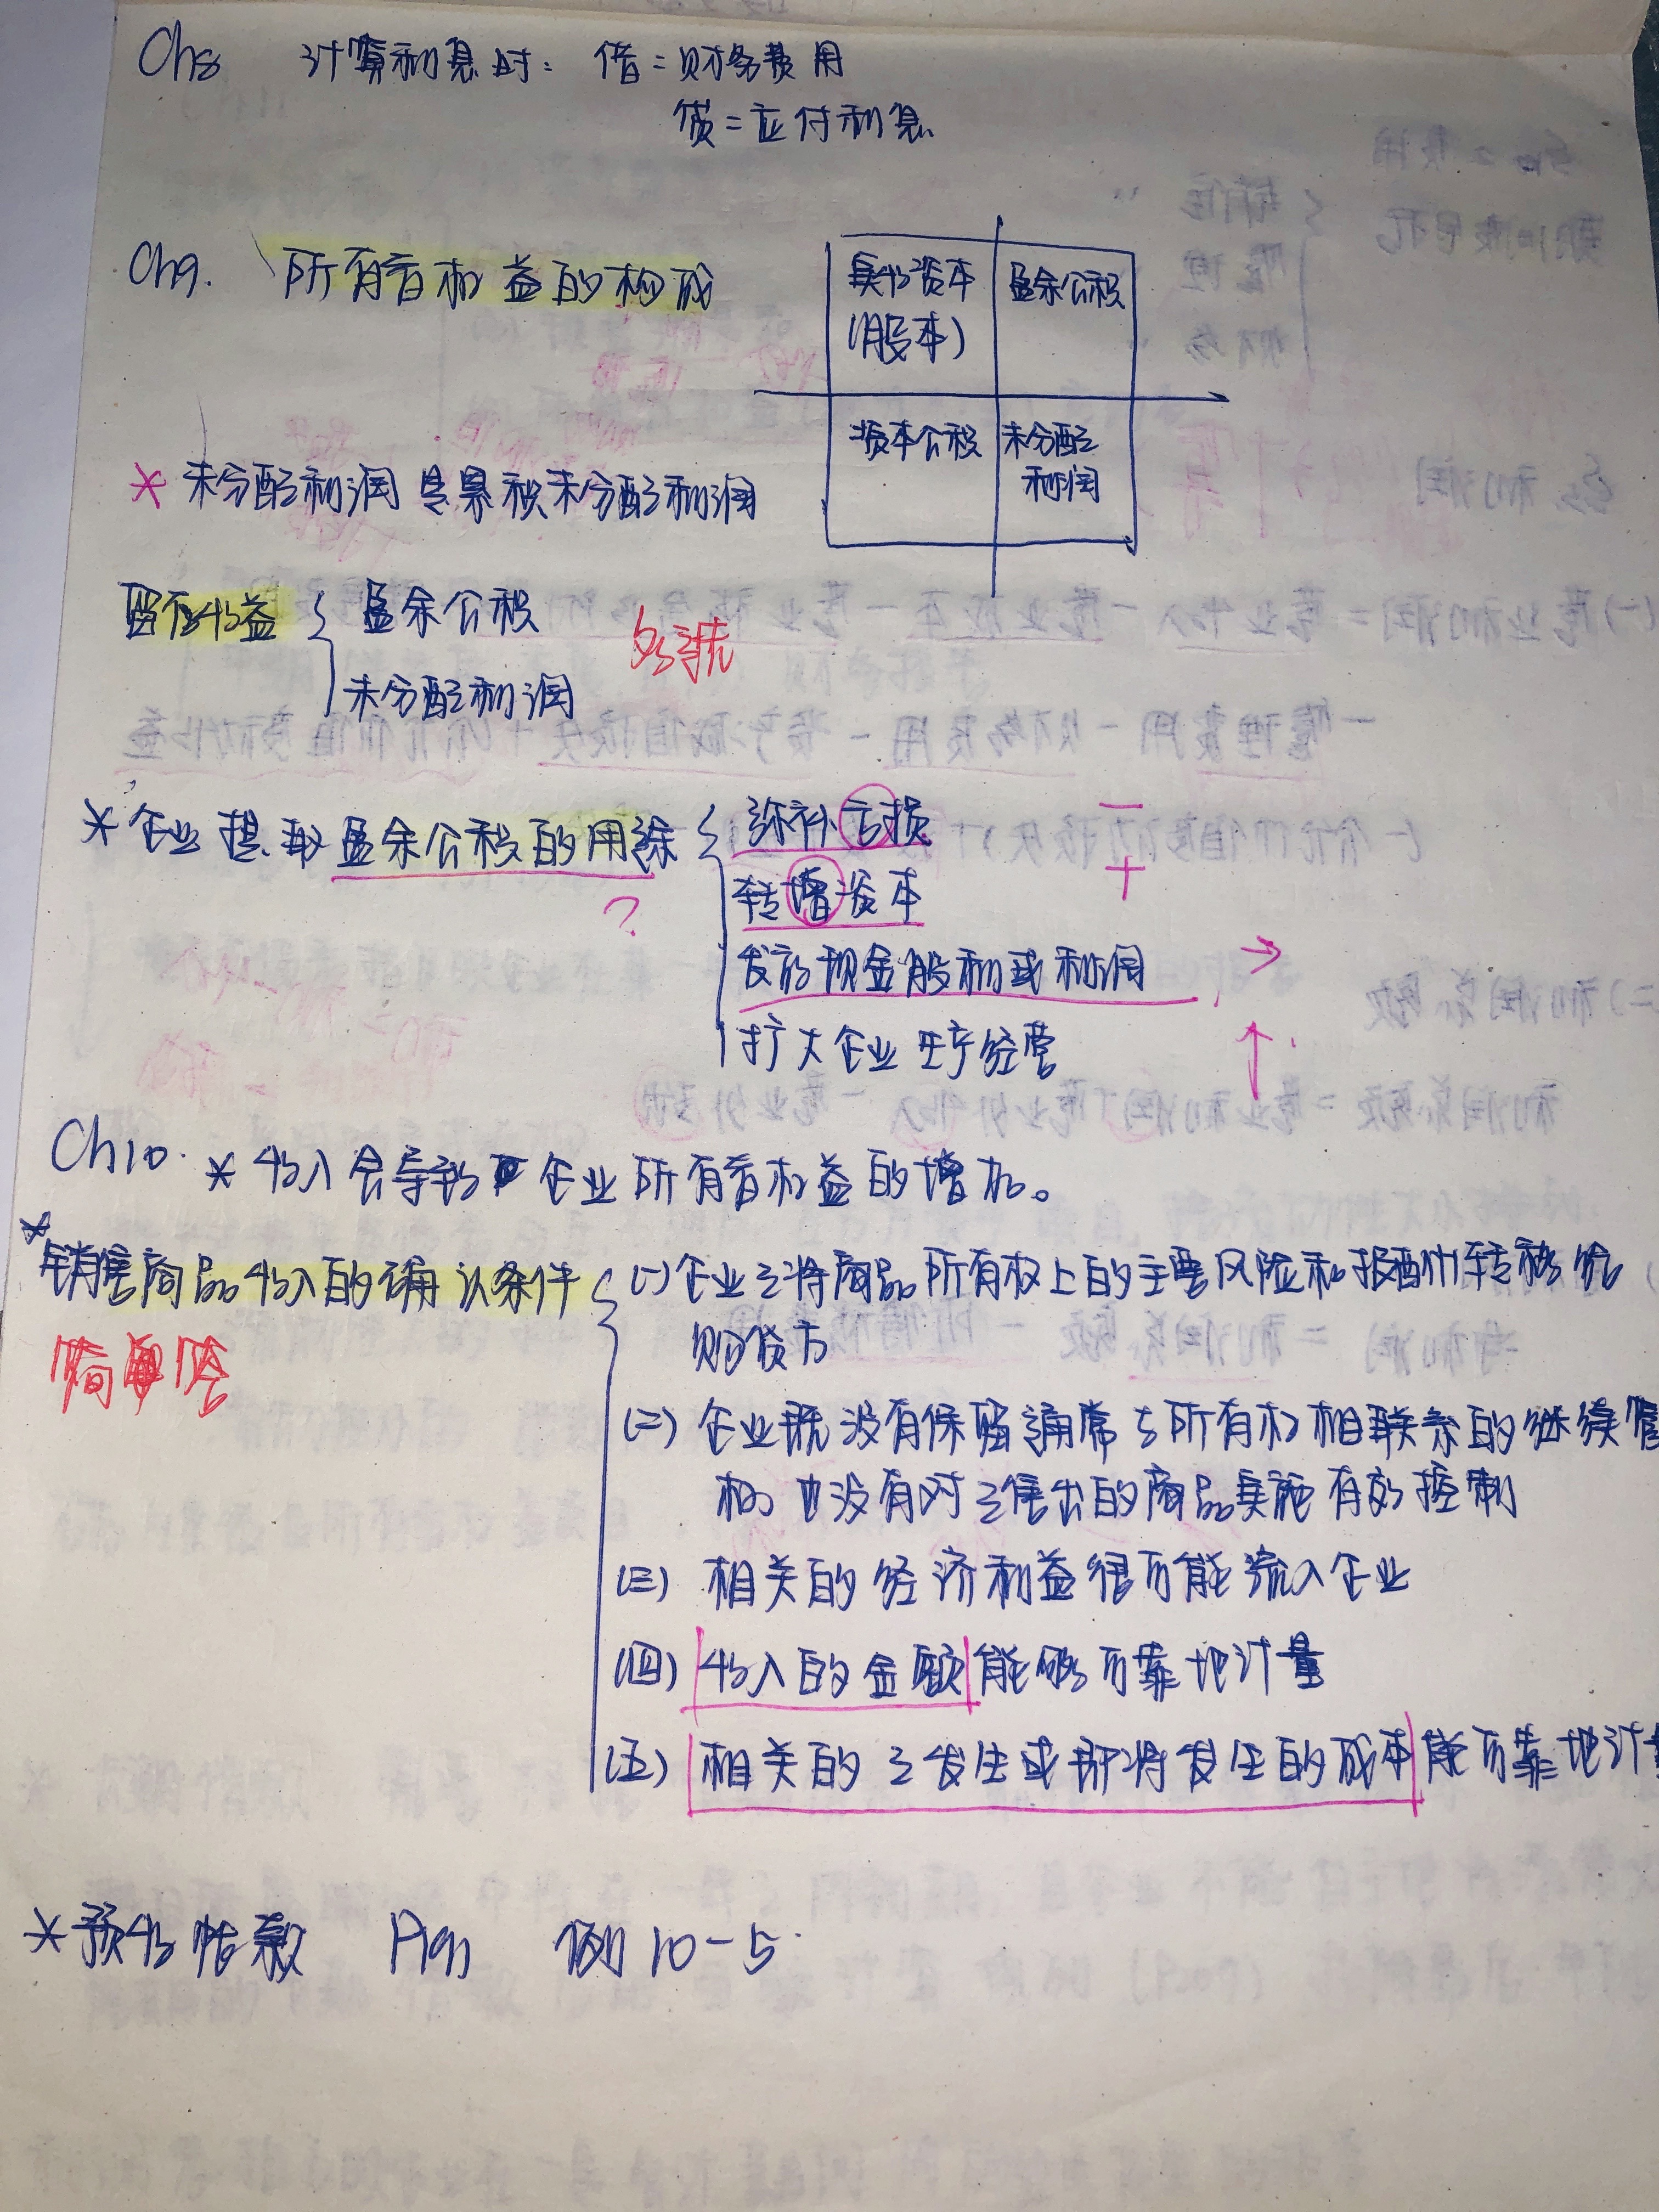 Ch8 计算利息时: 借=财务费用
贷=应付利息
Ch9. 所有者权益的构成
实收资本
(股本)
盈余公积
资本公积
未分配
利润
* 未分配利润是累积未分配利润
留存收益 { 盈余公积
未分配利润
必读
* 企业提取盈余公积的用途 { 弥补亏损 −
转增资本 +
?
发放现金股利或利润 →
扩大企业生产经营 ↑
Ch10. * 收入会导致企业所有者权益的增加。
* 销售商品收入的确认条件 { (一) 企业已将商品所有权上的主要风险和报酬转移给
购货方
(二) 企业既没有保留通常与所有权相联系的继续管
权, 也没有对已售出的商品实施有效控制
(三) 相关的经济利益很可能流入企业
(四) 收入的金额能够可靠地计量
(五) 相关的已发生或即将发生的成本能可靠地计量
* 预收帐款 例10-5